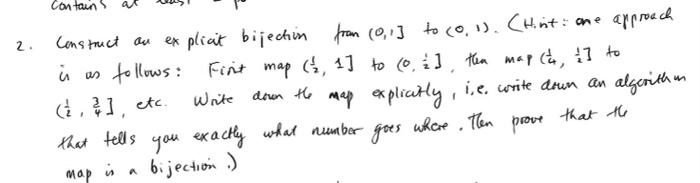 contains at least
2. Construct an explicit bijection from (0,1] to (0,1). (Hint: one approach
is as follows: First map (1/2, 1] to (0, 1/2], then map (1/4, 1/2] to
(1/2, 3/4], etc. Write down the map explicitly, i.e. write down an algorithm
that tells you exactly what number goes where. Then prove that the
map is a bijection.)